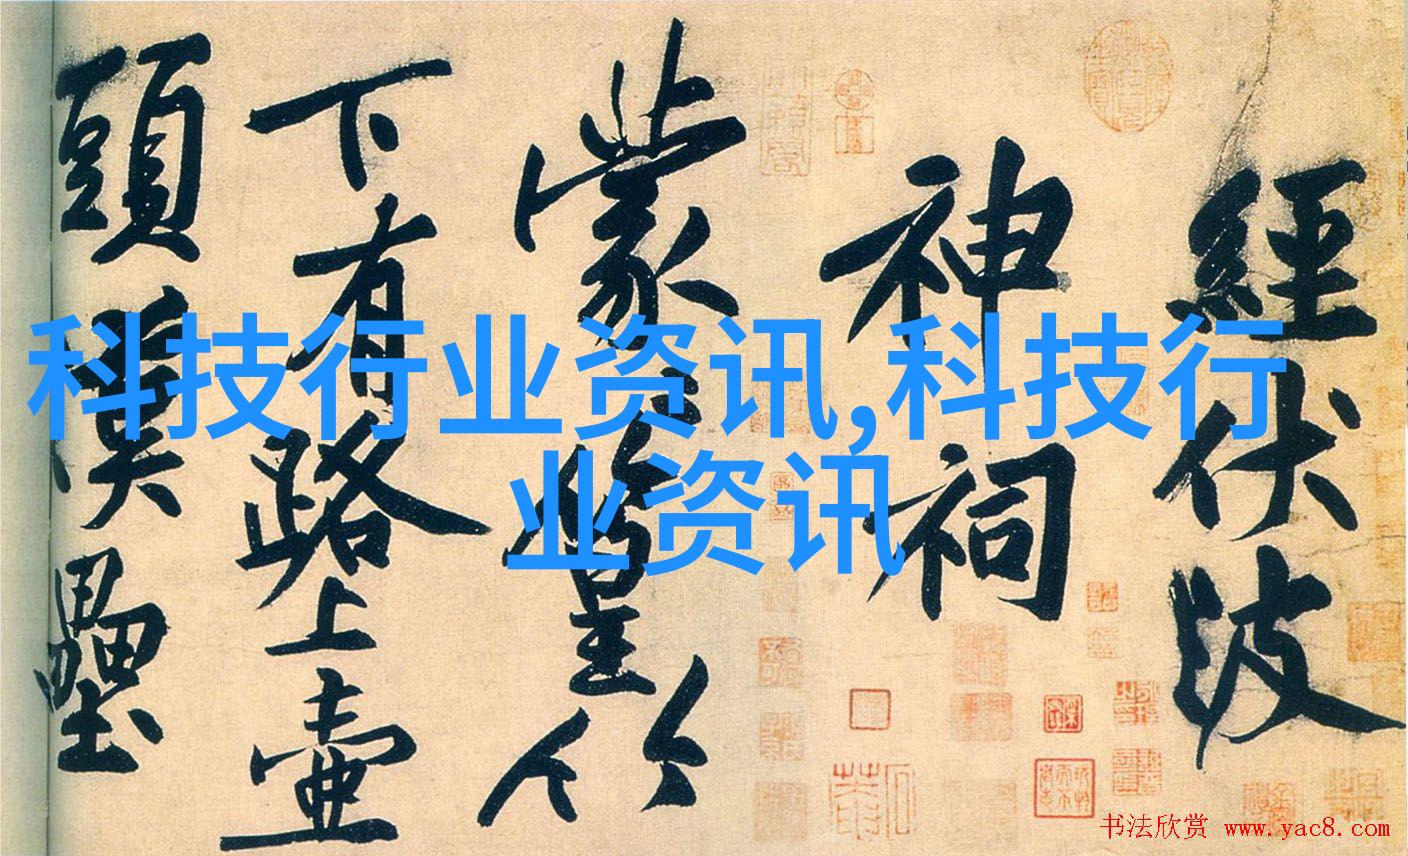 經伏波
神祠
蒙〻篁竹
下有路上壺
頭漢壘
科技行业资讯,科技行
业资讯
书法欣赏 www.yac8.com